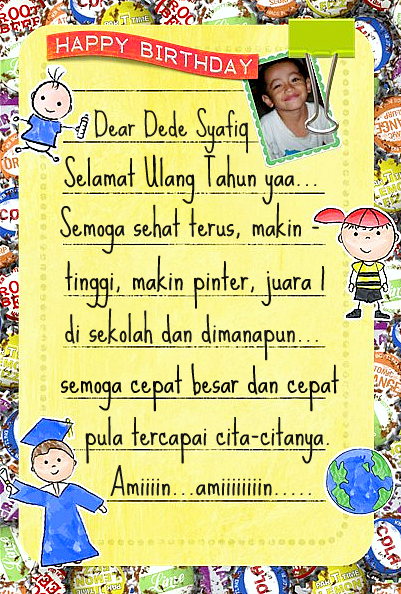 HAPPY BIRTHDAY
Dear Dede Syafiq
Selamat Ulang Tahun yaa...
Semoga sehat terus, makin -
tinggi, makin pinter, juara 1
di sekolah dan dimanapun...
semoga cepat besar dan cepat
pula tercapai cita-citanya.
Amiiiin...amiiiiiiiin.....